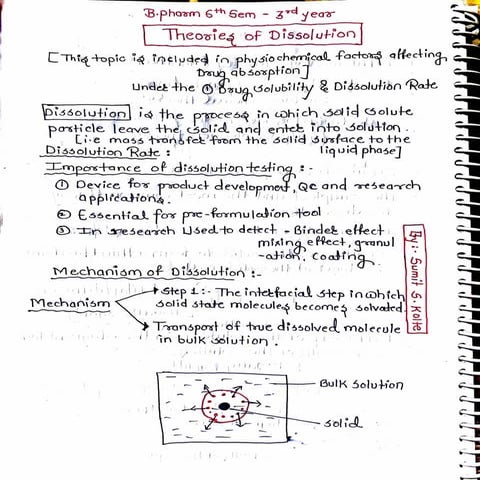 B.pharm 6th Sem - 3rd year
Theories of Dissolution
[This topic is included in physiochemical factors affecting
Drug absorption]
Under the ① Drug solubility & Dissolution Rate
Dissolution is the process in which solid solute
particle leave the solid and enter into solution.
[i.e mass transfer from the solid surface to the
liquid phase]
Dissolution Rate :
Importance of dissolution testing :-
① Device for product development, Qc and research
applications.
② Essential for pre-formulation tool
③ In research Used to detect - Binder effect
mixing effect, granul
-ation, coating.
Mechanism of Dissolution :-
Mechanism
Step 1 :- The interfacial step in which
solid state molecules becomes solvated.
Transport of true dissolved molecule
in bulk solution.
Bulk solution
solid
By:- Sumit S. Kolte